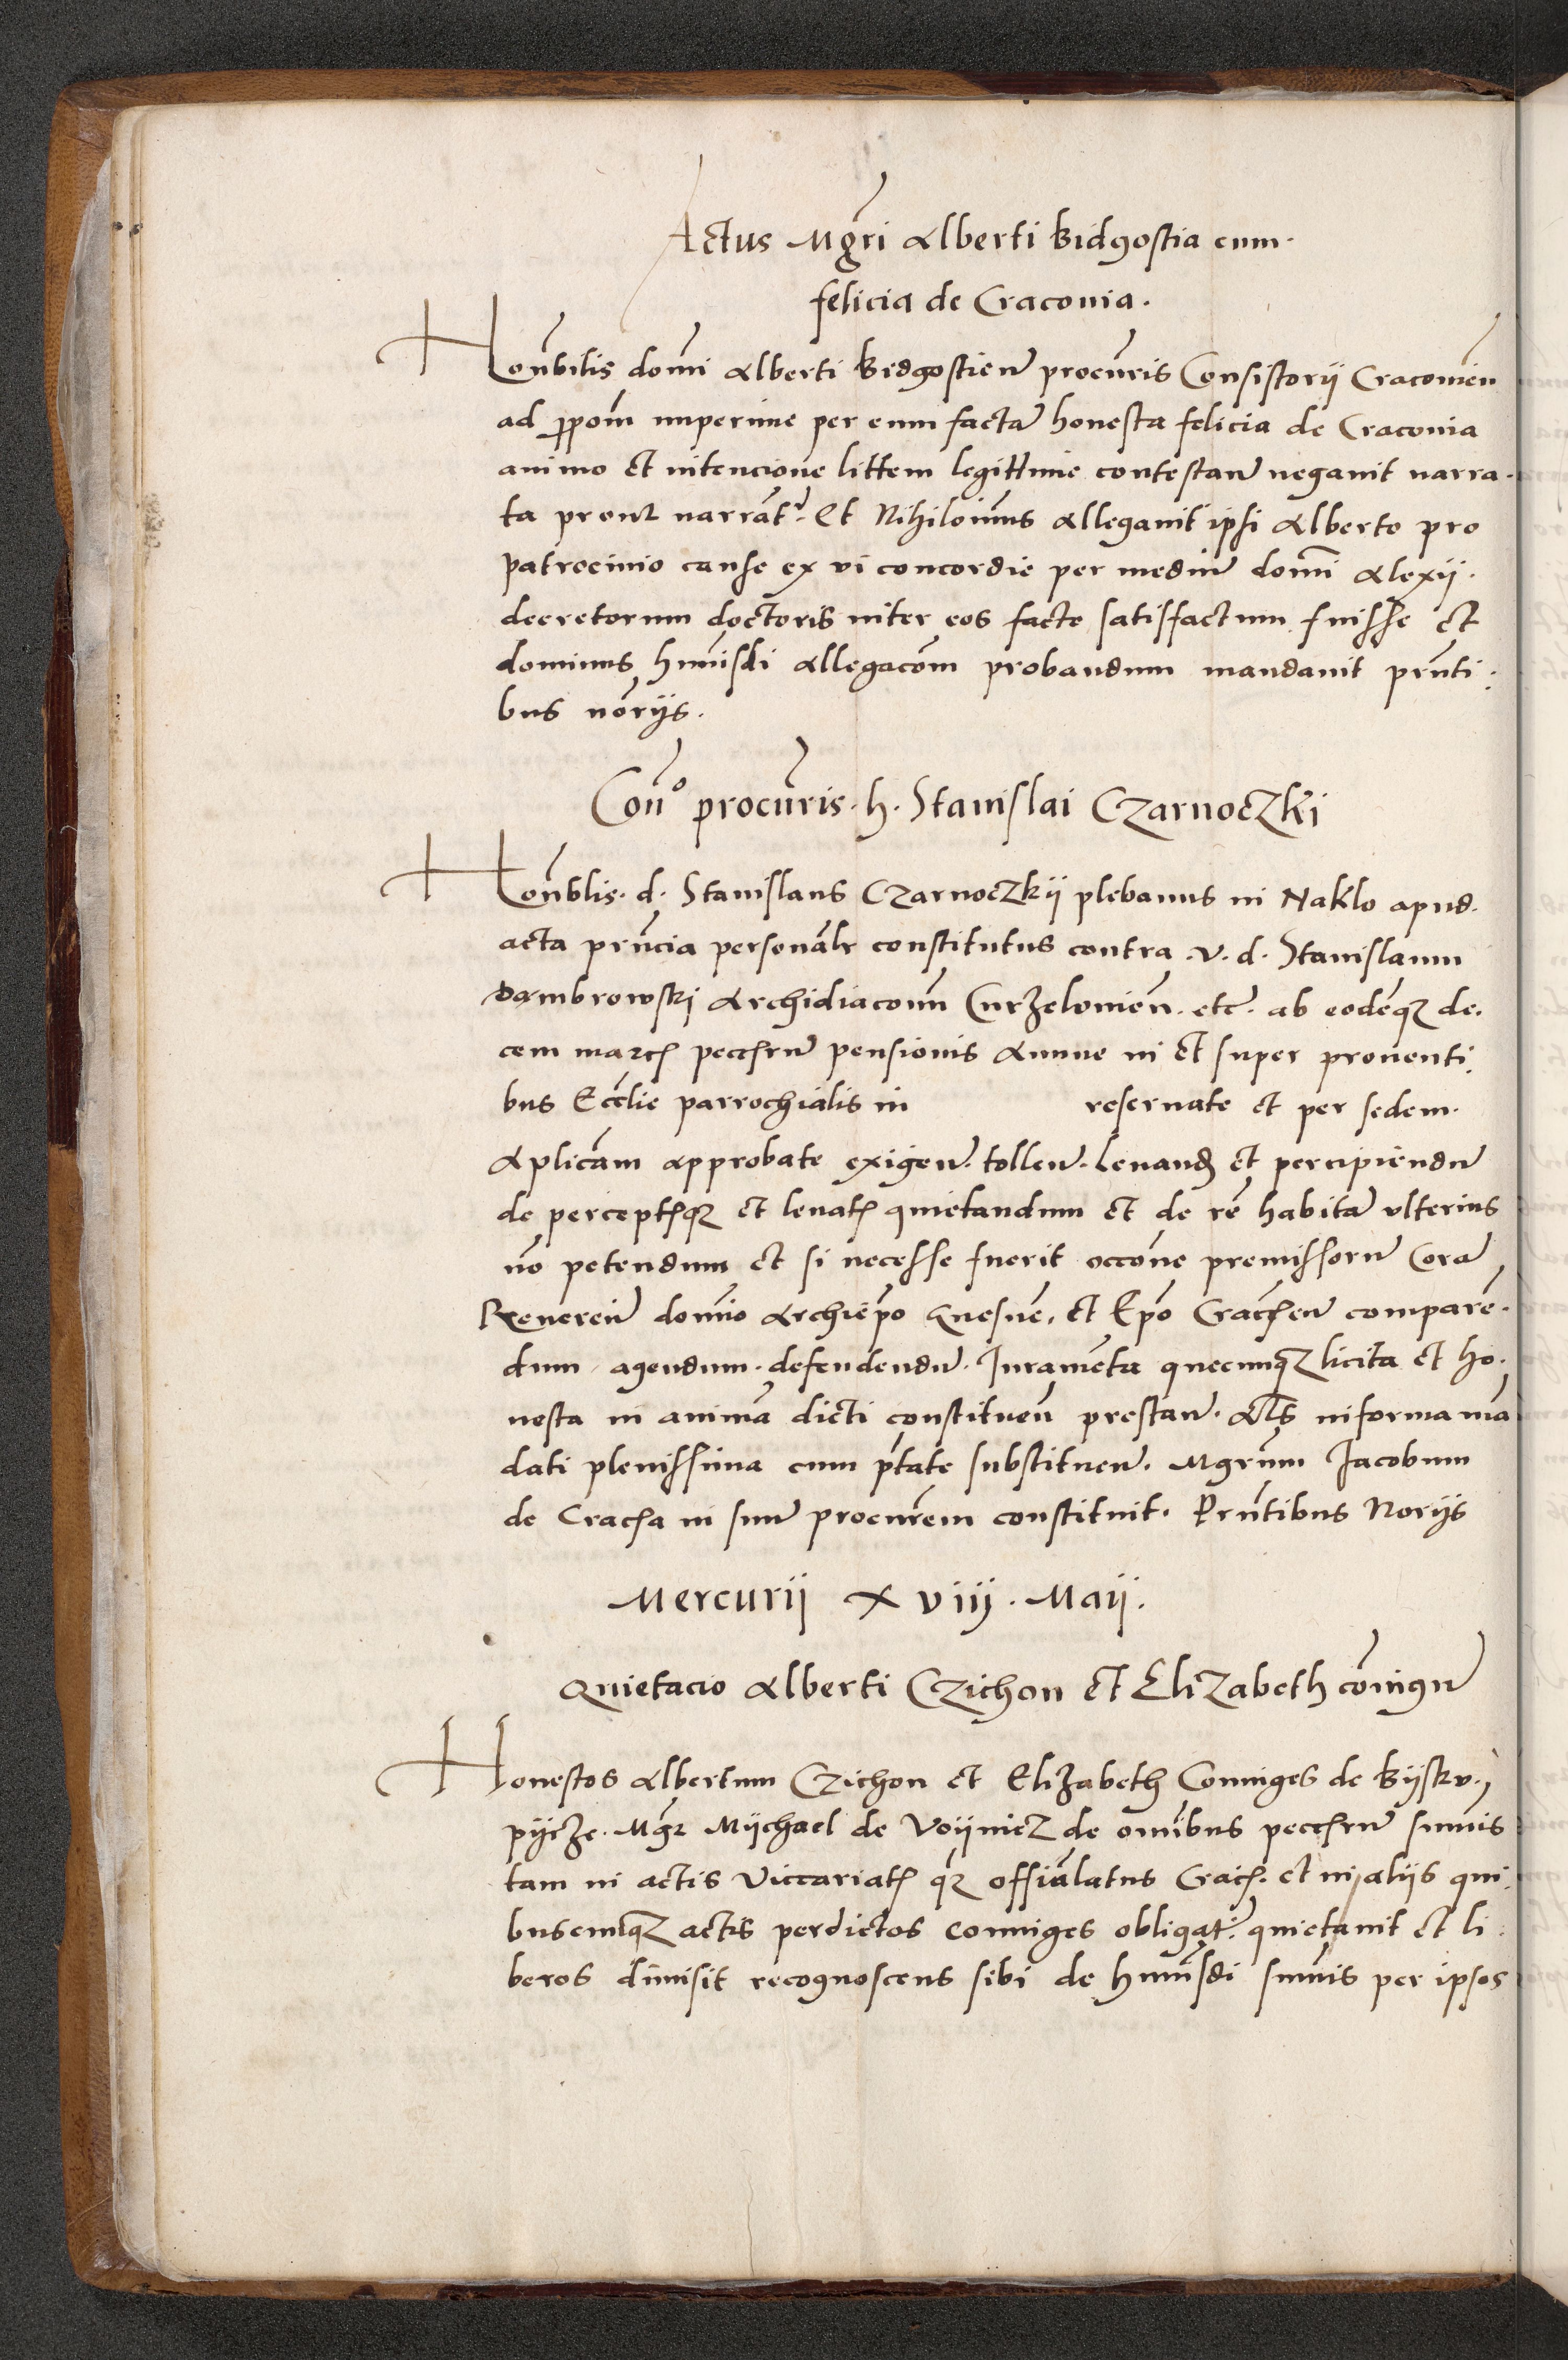 Actus Mgri Alberti Bidgostia cum
felicia de Cracouia.
Honbilis domi Alberti Bidgostien procuris Consistorij Cracouien
ad ppom nuperime per eum facta honesta felicia de Cracouia
animo et intencione littem legittime contestan negauit narra
ta prout narrant. Et Nihilomus allegauit ipsi Alberto pro
patrocinio cause ex vi concordie per mediu domi Alexij
decretorum doctoris inter eos facte satisfactum fuisse et
dominus humsdi allegacom probandum mandauit pnti
bus norijs.
Con° procuris. h. Stanislai Czarnoczki
Honblis. d. Stanislaus Czarnoczkij plebanus in Naklo apud
acta pncia personalr constitutus contra .v. d. Stanislaum
Dambrowski Archidiaconu Curzelouien. etc. ab eodeqz de
cem marcs peccrum pensionis annue in et super prouenti
bus Ecclie parrochialis in reseruate et per sedem
Aplicam approbate exigen. tollen. leuand et percipiendu
de perceptisqz et leuatis quietandum et de re habita vlterius
no petendum et si necesse fuerit occone premissoru Cora
Reueren domino Archiepo Gnesne. et Epo Craccen compare
dum agendum. defendendu. Iuramenta quecumqz licita et ho
nesta in anima dicti constituen prestan. Als in forma ma
dati plenissima cum ptate substituen. Mgrum Jacobum
de Craca in suu procurem constituit. Pntibus Norijs
Mercurii X viij. Maij.
Quietacio Alberti Czichon et Elizabeth coniugu
Honestos Albertum Czichon et Elizabeth Coniuges de Bijsku
pijcze. Mgr Mijchael de Voijnicz de omibus peccru sumis
tam in actis Viccariatus qz offialatus Crac. et in alijs qui
buscumqz actis perdictos coniuges obligat. quietauit et li
beros dimisit recognoscens sibi de humsdi sumis per ipsos